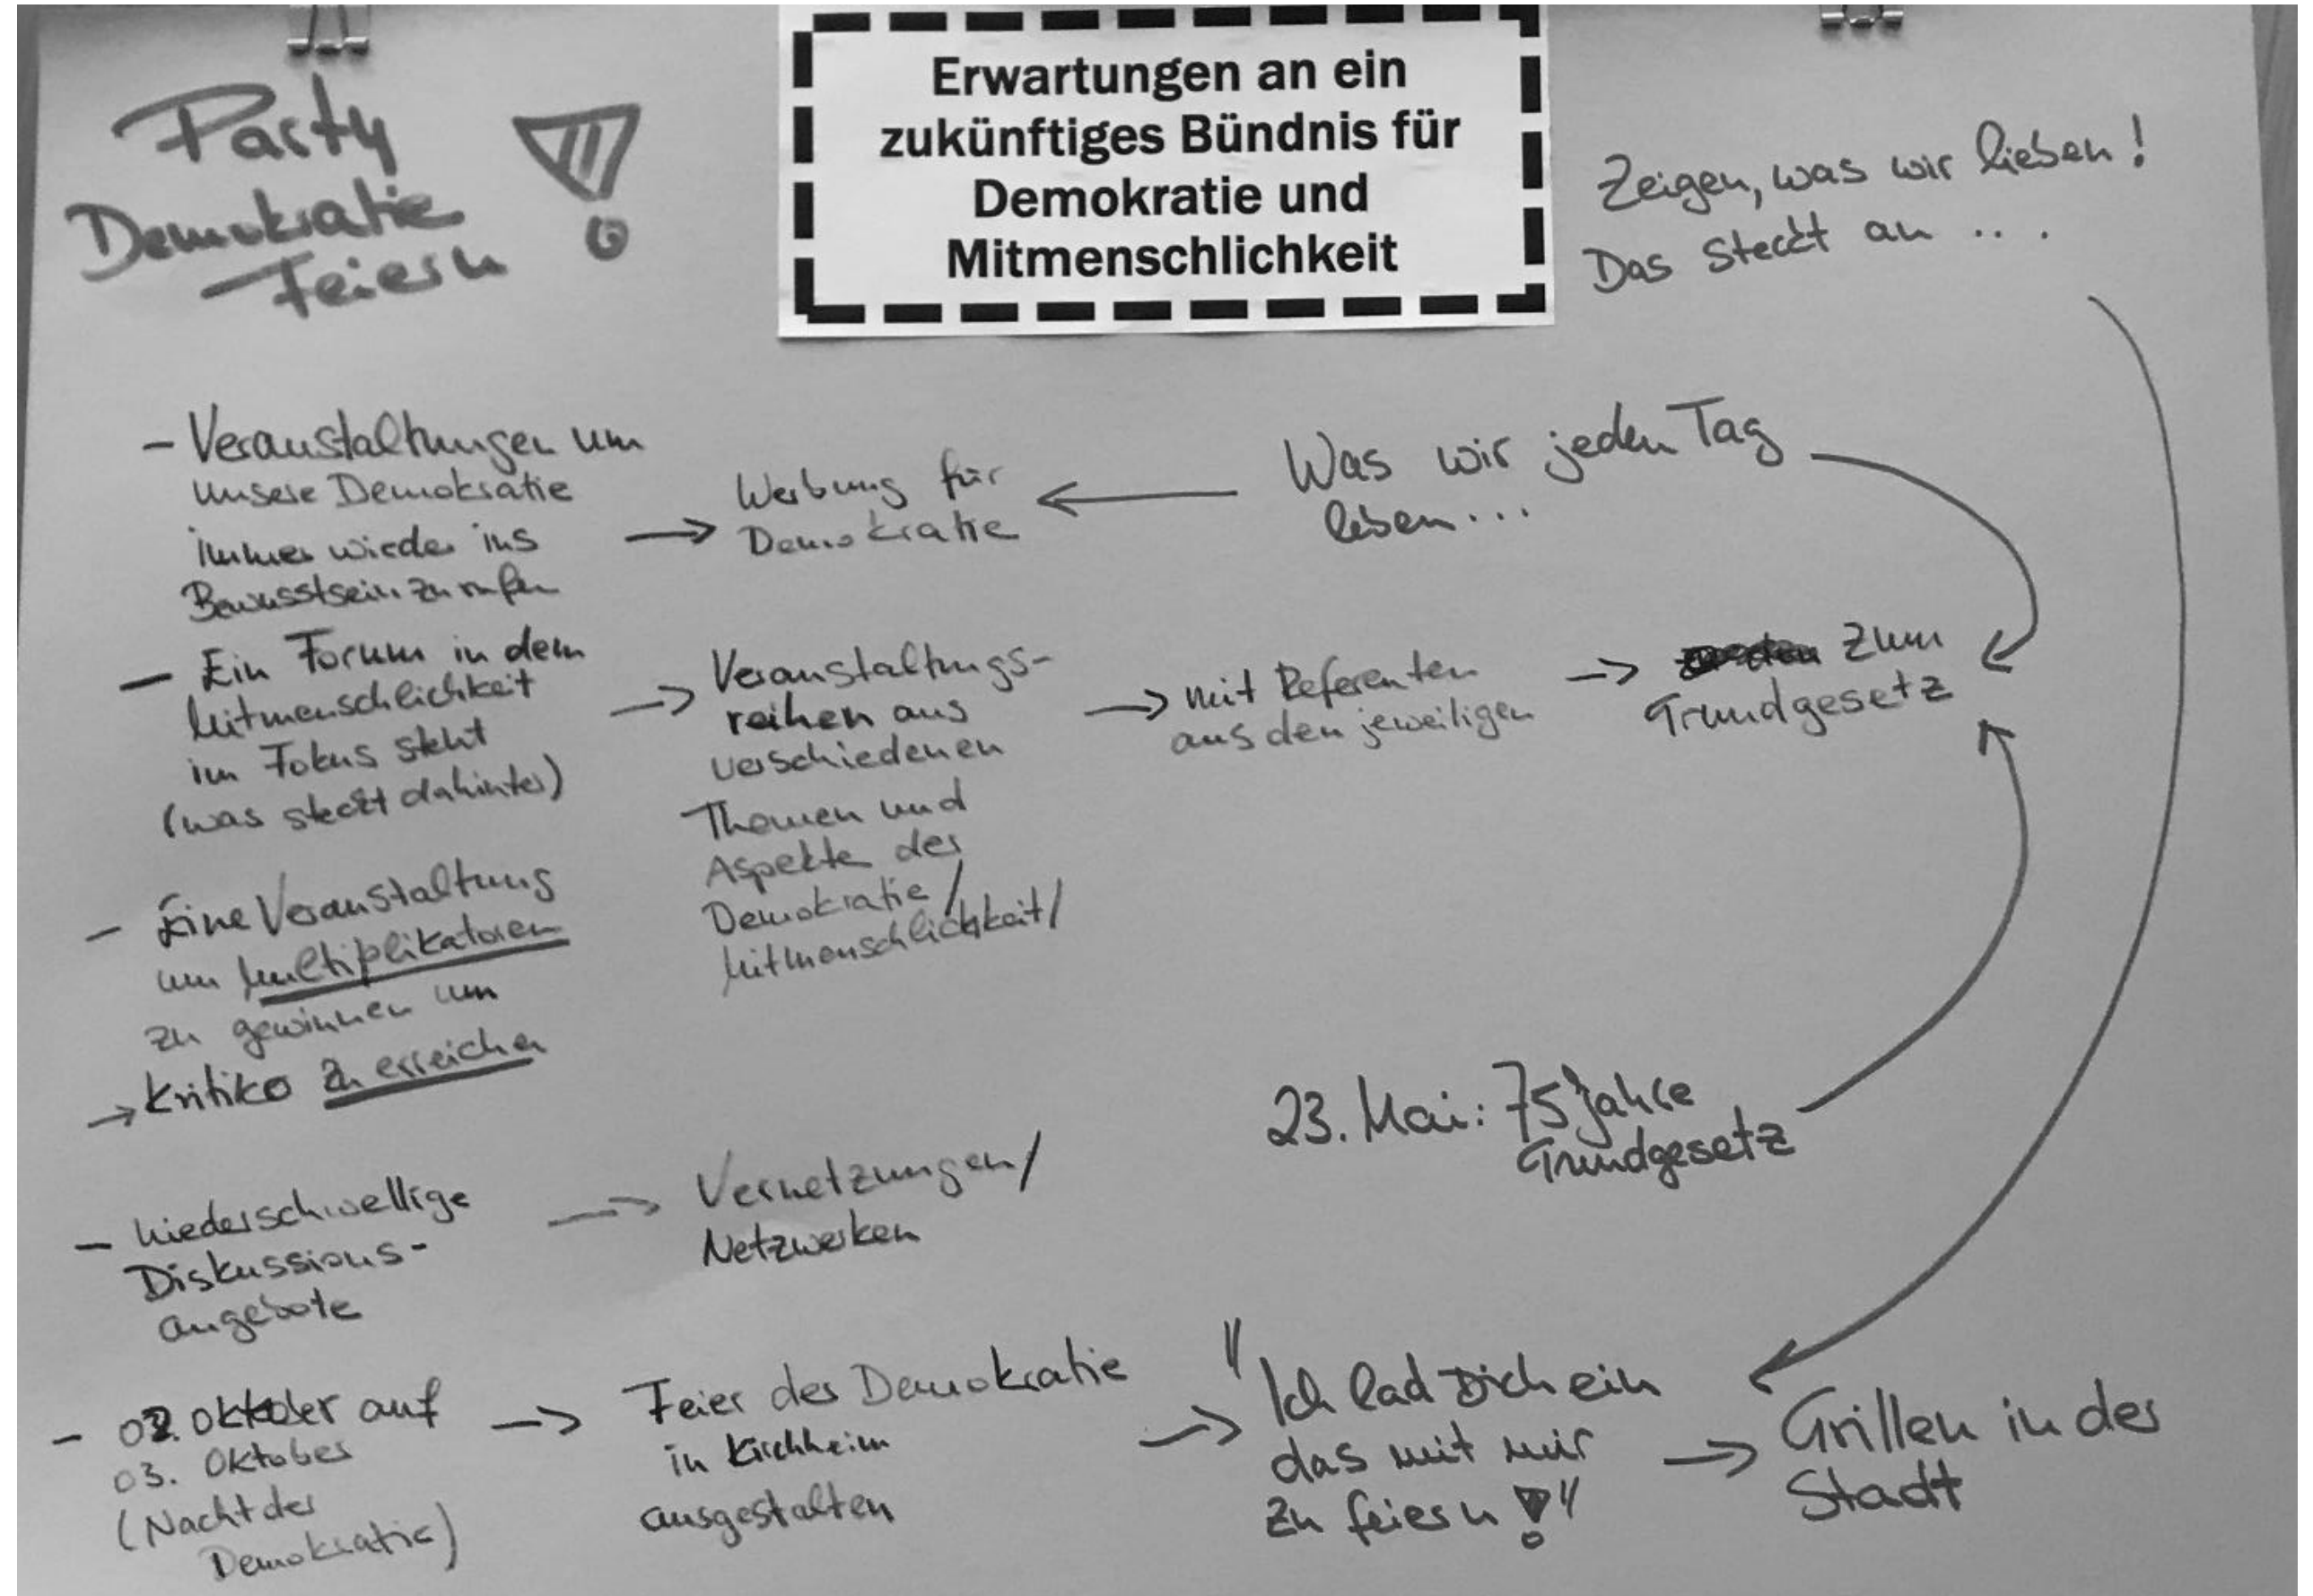 Party
Demokratie
Feiern !
Erwartungen an ein
zukünftiges Bündnis für
Demokratie und
Mitmenschlichkeit
Zeigen, was wir lieben!
Das steckt an ....
- Veranstaltungen um
unsere Demokratie
immer wieder ins
Bewusstsein zu rufen
→ Werbung für
Demokratie
← Was wir jeden Tag
leben...
- Ein Forum in dem
Mitmenschlichkeit
im Fokus steht
(was steckt dahinter)
→ Veranstaltungs-
reihen aus
verschiedenen
Themen und
Aspekte der
Demokratie/
Mitmenschlichkeit/
→ mit Referenten
aus den jeweiligen
→ zum
Grundgesetz
- Eine Veranstaltung
um Multiplikatoren
zu gewinnen um
→ Kritiko zu erreichen
23. Mai: 75 Jahre
Grundgesetz
- Niederschwellige
Diskussions-
angebote
→ Vernetzungen/
Netzwerken
- 02. Oktober auf
03. Oktober
(Nacht der
Demokratie)
→ Feier der Demokratie
in Kirchheim
ausgestalten
→ "Ich lad Dich ein
das mit mir
zu feiern!"
→ Grillen in der
Stadt